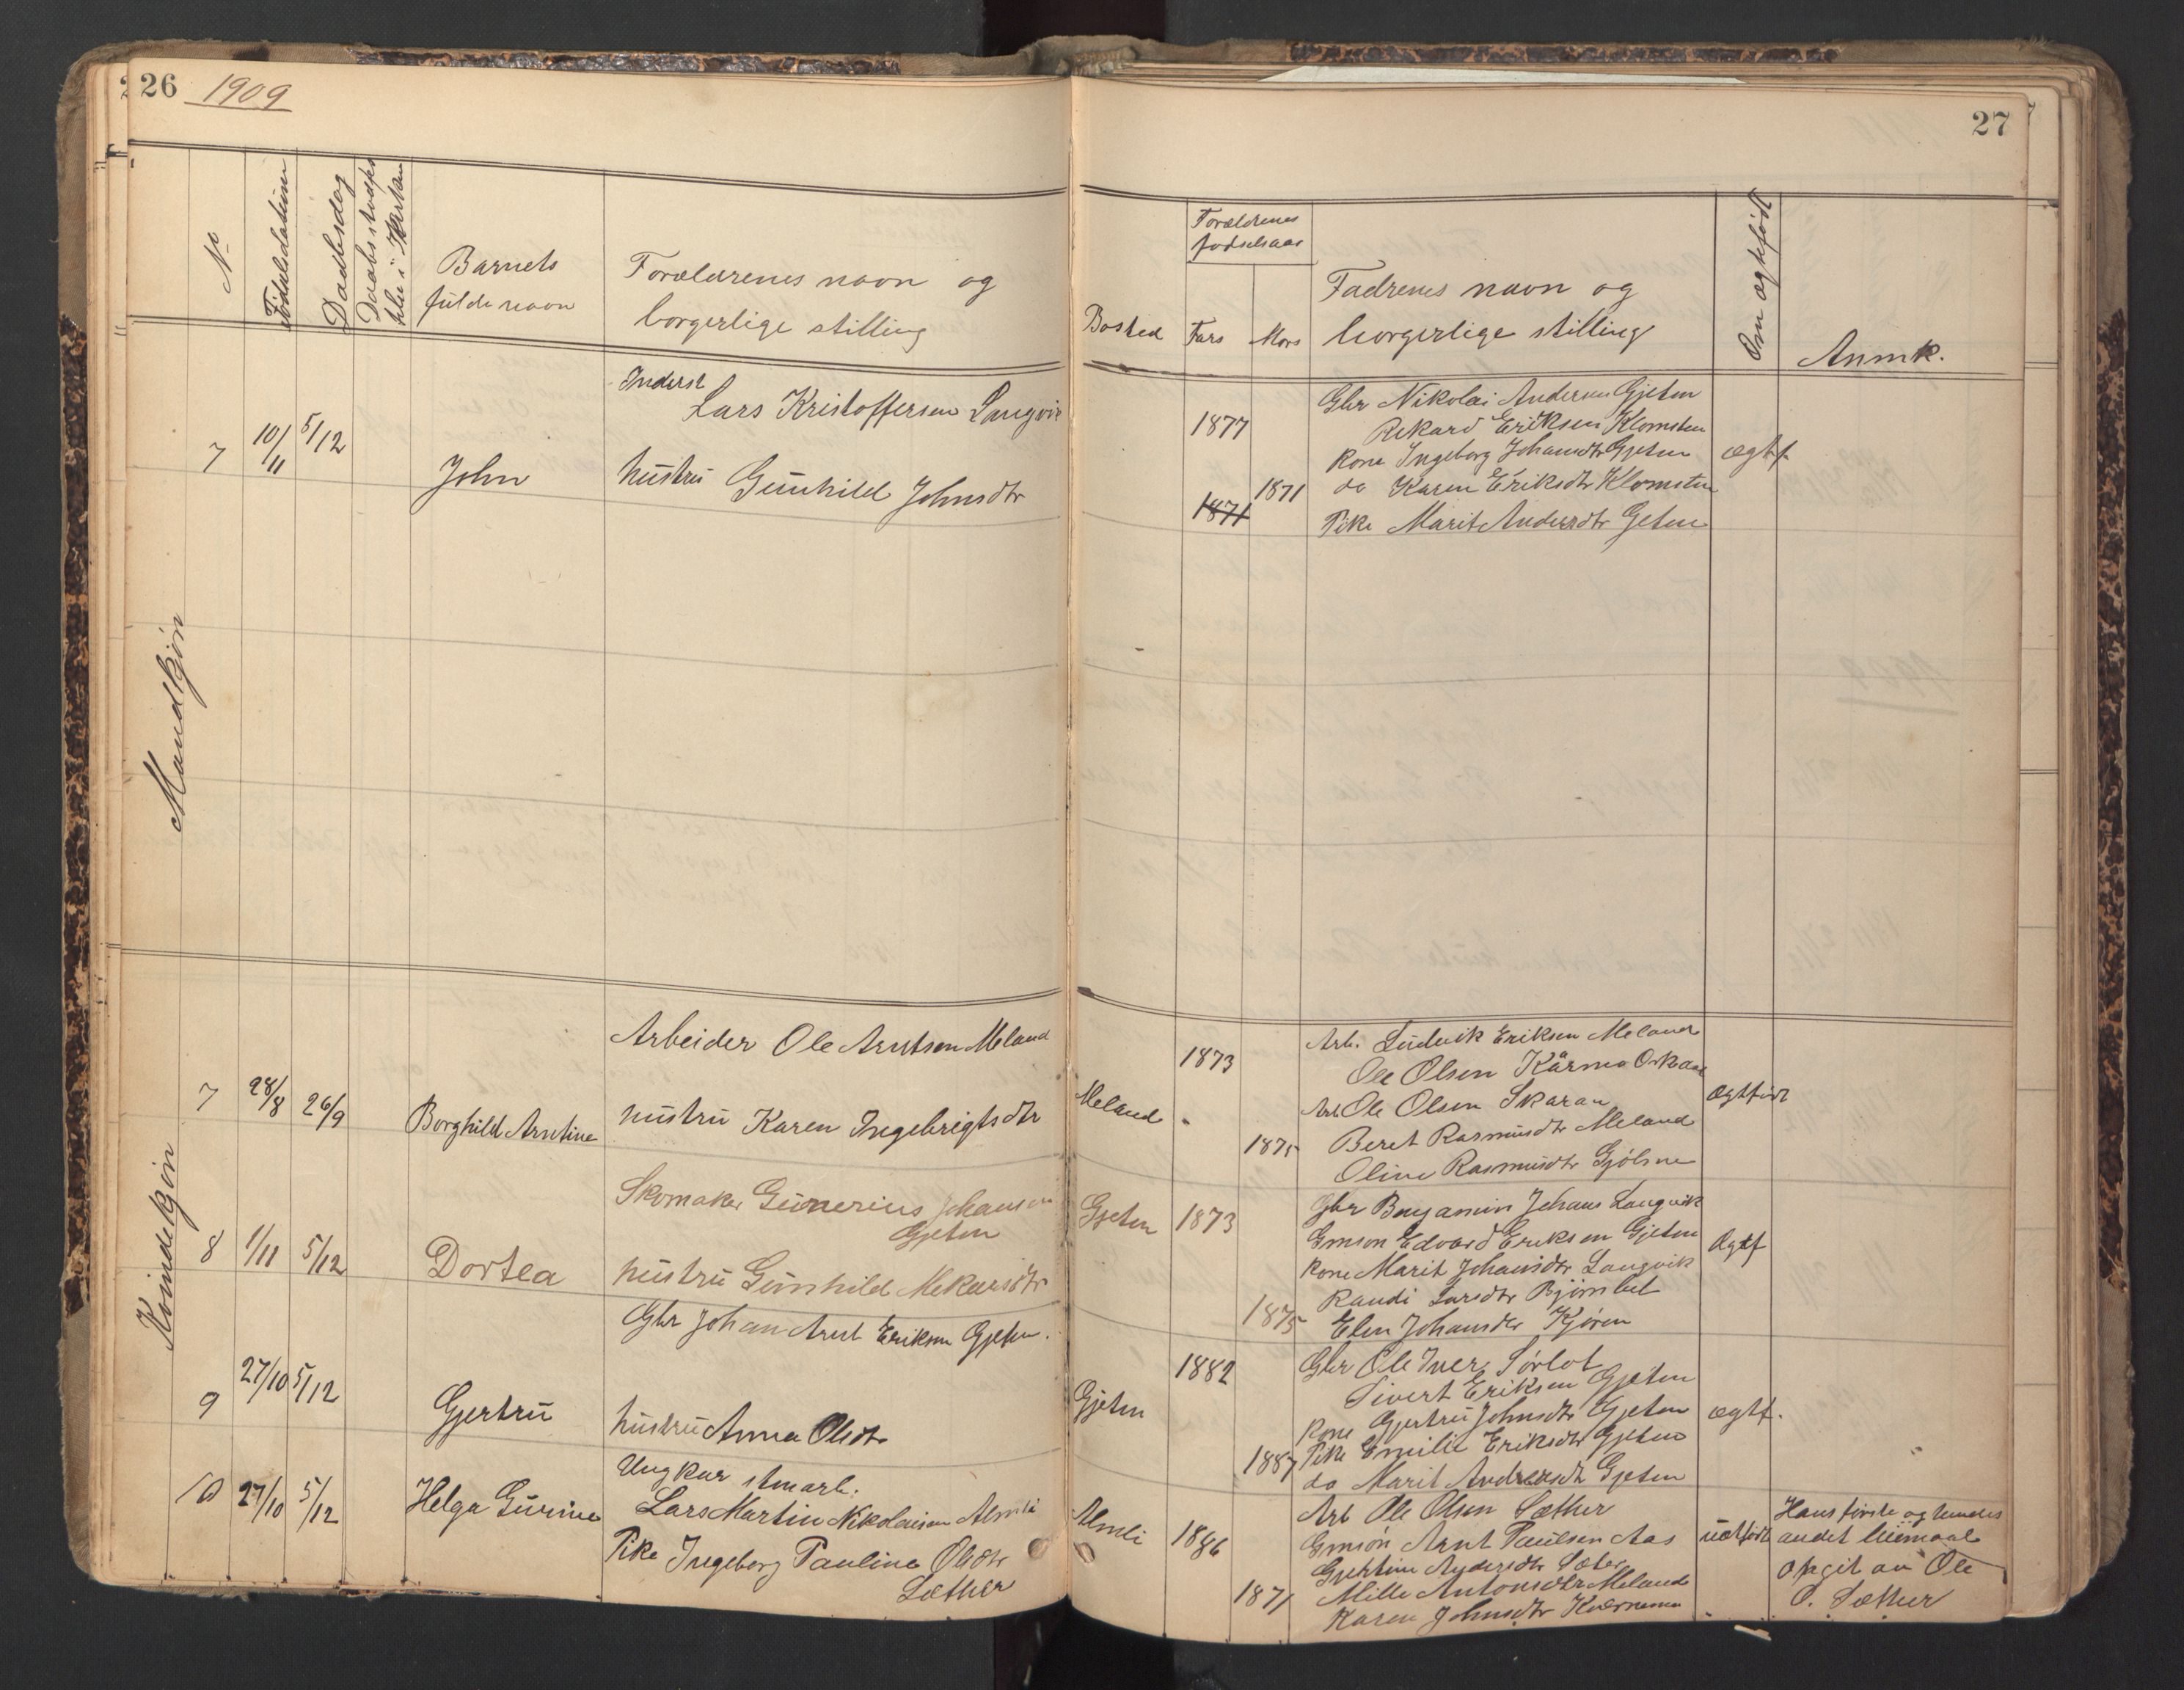 26 1909
27
No
Fødselsdatum
Daabsdag
Barnets
fulde navn
Forældrenes navn og
borgerlige stilling
Bosted
Forældrenes
fødselsaar
Fars Mors
Fadrenes navn og
borgerlige stilling
Om ægtefødt
Anmk.
Mandkjøn
7 10/11 5/12 John
Inderst
Lars Kristoffersen Langvik
hustru Gunhild Johnsdtr
1877
1871
1871
Gbr Nikolai Andersen Gjeten
Rikard Eriksen Klomsten
Kone Ingeborg Johansdtr Gjeten
do Karen Eriksdtr Klomsten
Pike Marit Andersdtr Gjeten
ægtf.
Kvindekjøn
7 28/8 26/9 Borghild Arntine
Arbeider Ole Arntsen Meland
hustru Karen Ingebrigtsdtr
Meland
1873
1875
Arb. Ludvik Eriksen Meland
Ole Olsen Kårmo
Arb Ole Olsen Skaran
Beret Rasmusdtr Meland
Oline Rasmusdtr Gjølme
Ægtefødt
8 1/11 5/12 Dortea
Skomaker Gunerius Johansen
Gjeten
hustru Gunhild
Gjeten
1873
1875
Gbr Benjamin Johans Langvik
Gmson Edvard Eriksen Gjeten
Kone Marit Johansdtr Langvik
Randi Larsdtr
Elen Johansdtr Kjøren
Ægtf
9 27/10 5/12 Gjertru
Gbr Johan Arnt Eriksen Gjeten.
hustru Anna Olsdtr
Gjeten
1882
1887
Gbr Ole Iver Sørlot
Sivert Eriksen Gjeten
Kone Gjertru Johnsdtr Gjeten
Pike Emilie Eriksdtr Gjeten
do Marit Andersdtr Gjeten
ægtf.
10 27/10 5/12 Helga Gurine
Ungkar stmarb.
Lars Martin Nikolaisen Almli
Pike Ingeborg Paulina Olsdtr
Sæther
Almli
1886
1871
Arb Ole Olsen Sæther
Gmson Arnt Paulsen Aas
Gjertine Andersdtr Sæter
Mille Antonsdtr Meland
Karen Johnsdtr
uætfødt
Hans første og hendes
andet leiermaal
opgit av Ole
O. Sæther